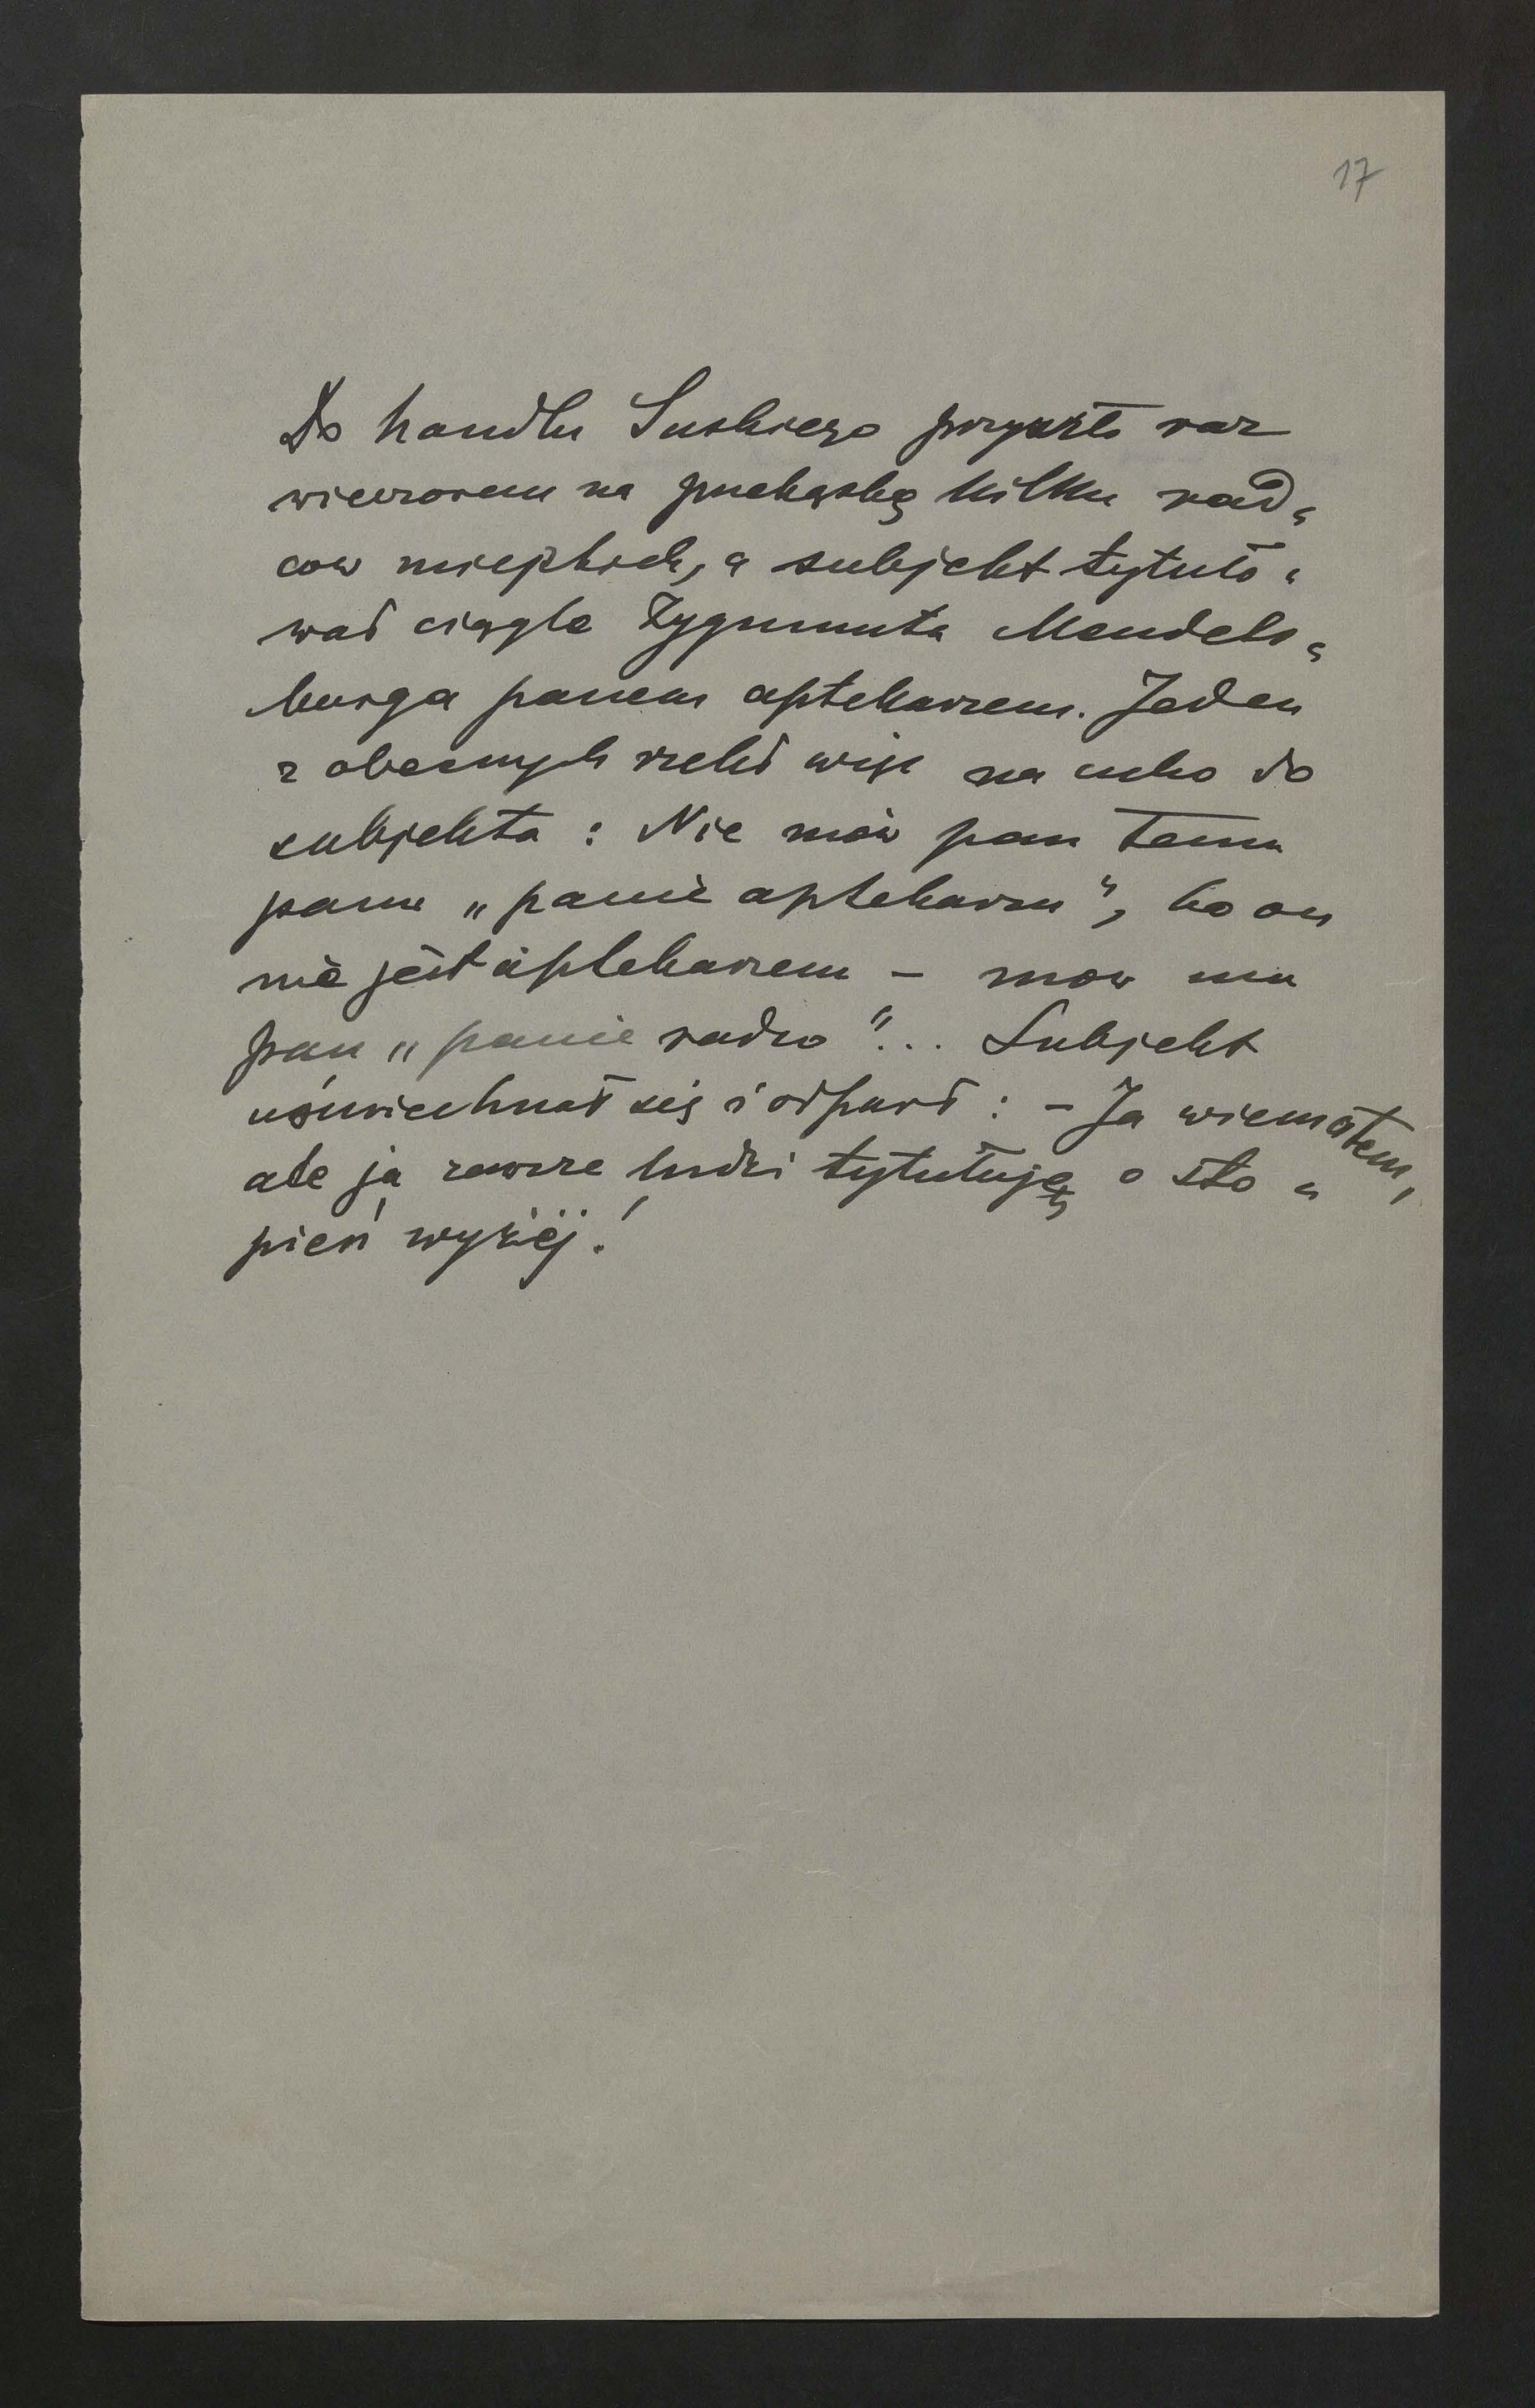 17
Do handlu Suskiego przyszło raz
wieczorem na przekąskę kilku rad„
ców miejskich, a subjekt tytuło„
wał ciągle Zygmunta Mendels„
burga panem aptekarzem. Jeden
z obecnych rzekł więc na ucho do
subjekta: Nie mów pan temu
panu „panie aptekarzu”, bo on
nie jest aptekarzem – mów mu
pan „panie radco”... Subjekt
uśmiechnął się i odparł: – Ja wiem o tem,
ale ja zawsze ludzi tytułuję o sto„
pień wyżej!